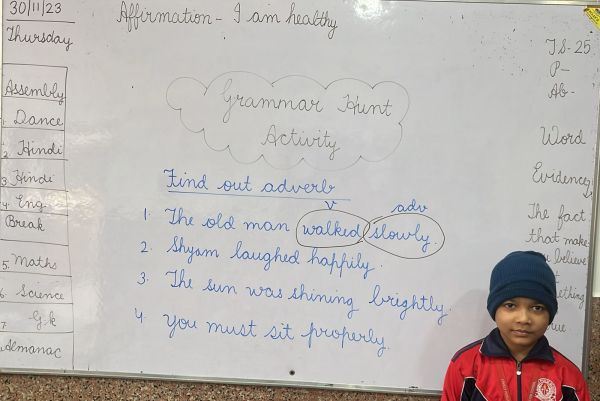 30/11/23
Thursday
Affirmation - I am healthy
Assembly
1. Dance
2. Hindi
3. Hindi
4. Eng
Break
5. Maths
6. Science
7 G.k
Almanac
Grammar Hunt
Activity
Find out adverb
v adv
1. The old man walked slowly.
2. Shyam laughed happily.
3. The sun was shining brightly.
4. You must sit properly.
T.S - 25
P-
Ab-
Word
Evidence
The fact
that make
believe